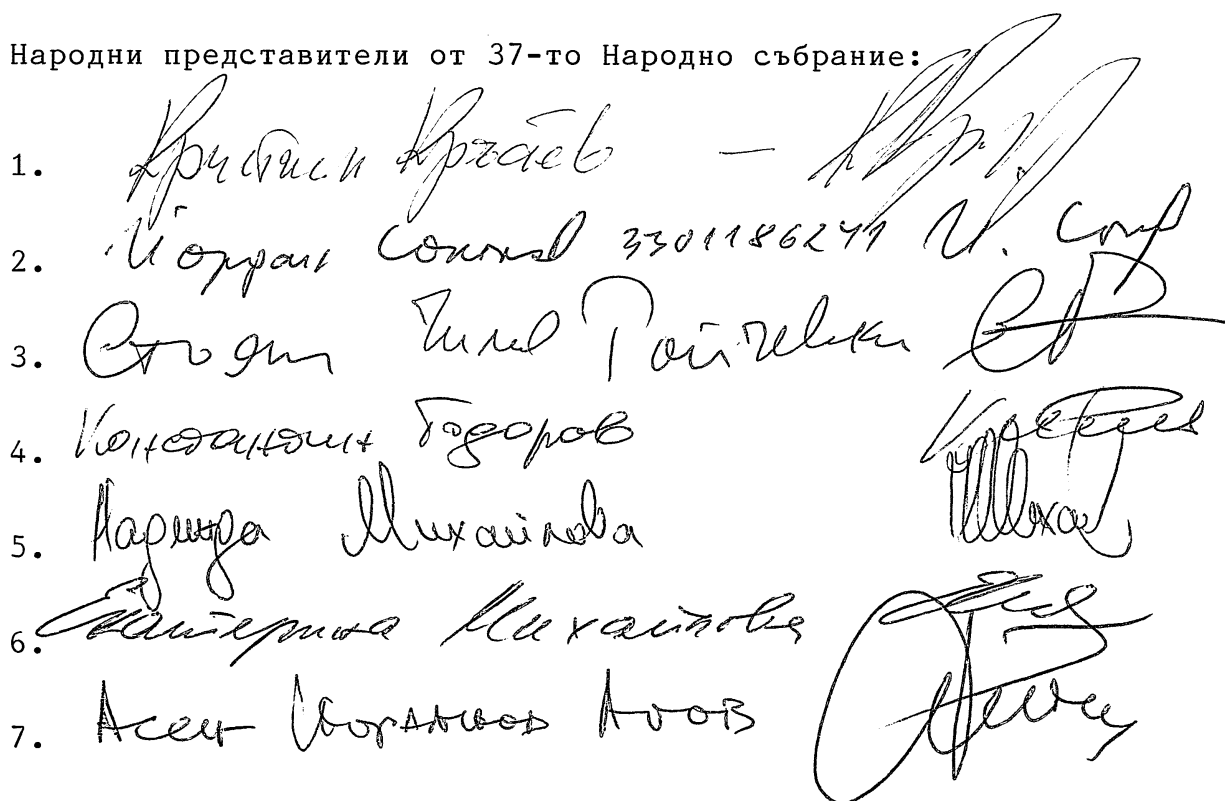 Народни представители от 37-то Народно събрание:
1. Кристиян Кръчев —
2. Йордан Соколов 3301186241 Й. Сок
3. Стоян Илиев Райчевски
4. Константин Тодоров
5. Надежда Михайлова Михай
6. Екатерина Михайлова
7. Асен Йорданов Агов